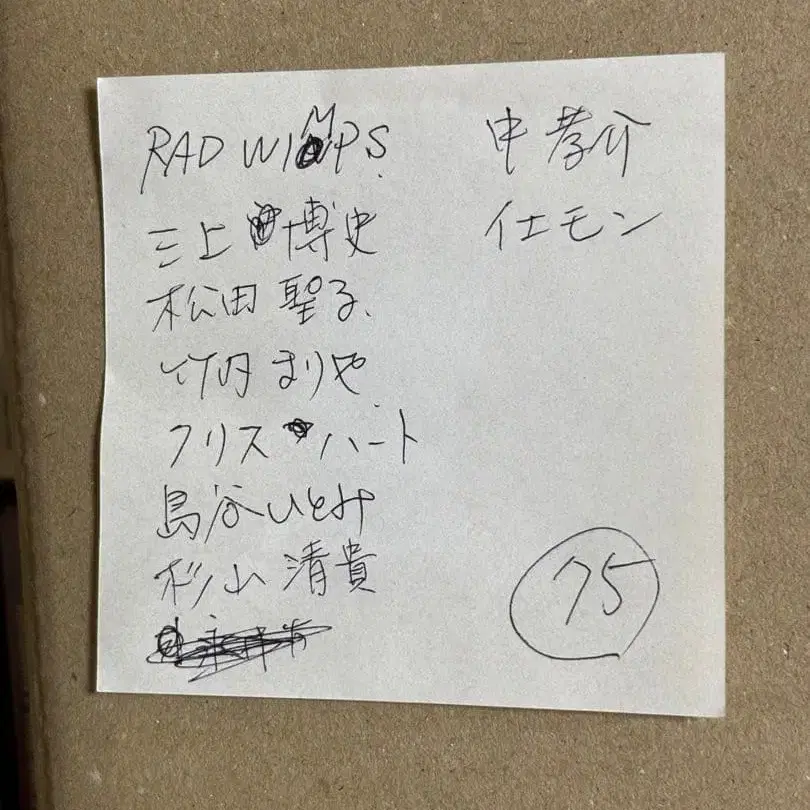 RADWIMPS
三上博史
松田聖子
竹内まりや
クリス・ハート
島谷ひとみ
杉山清貴
中孝介
イエモン
75